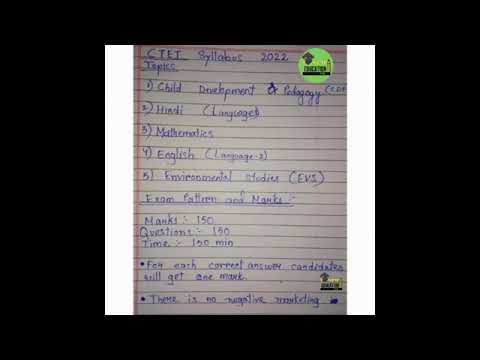 CTET Syllabus 2022
Topics
1) Child Development & Pedagogy (CDP
2) Hindi (Language1)
3) Mathematics
4) English (Language-2)
5) Environmental Studies (EVS)
Exam Pattern and Marks :-
Marks :- 150
Questions :- 150
Time :- 150 min
• For each correct answer candidates
will get one mark.
• There is no negative marketing
EDUCATION
EDUCATION